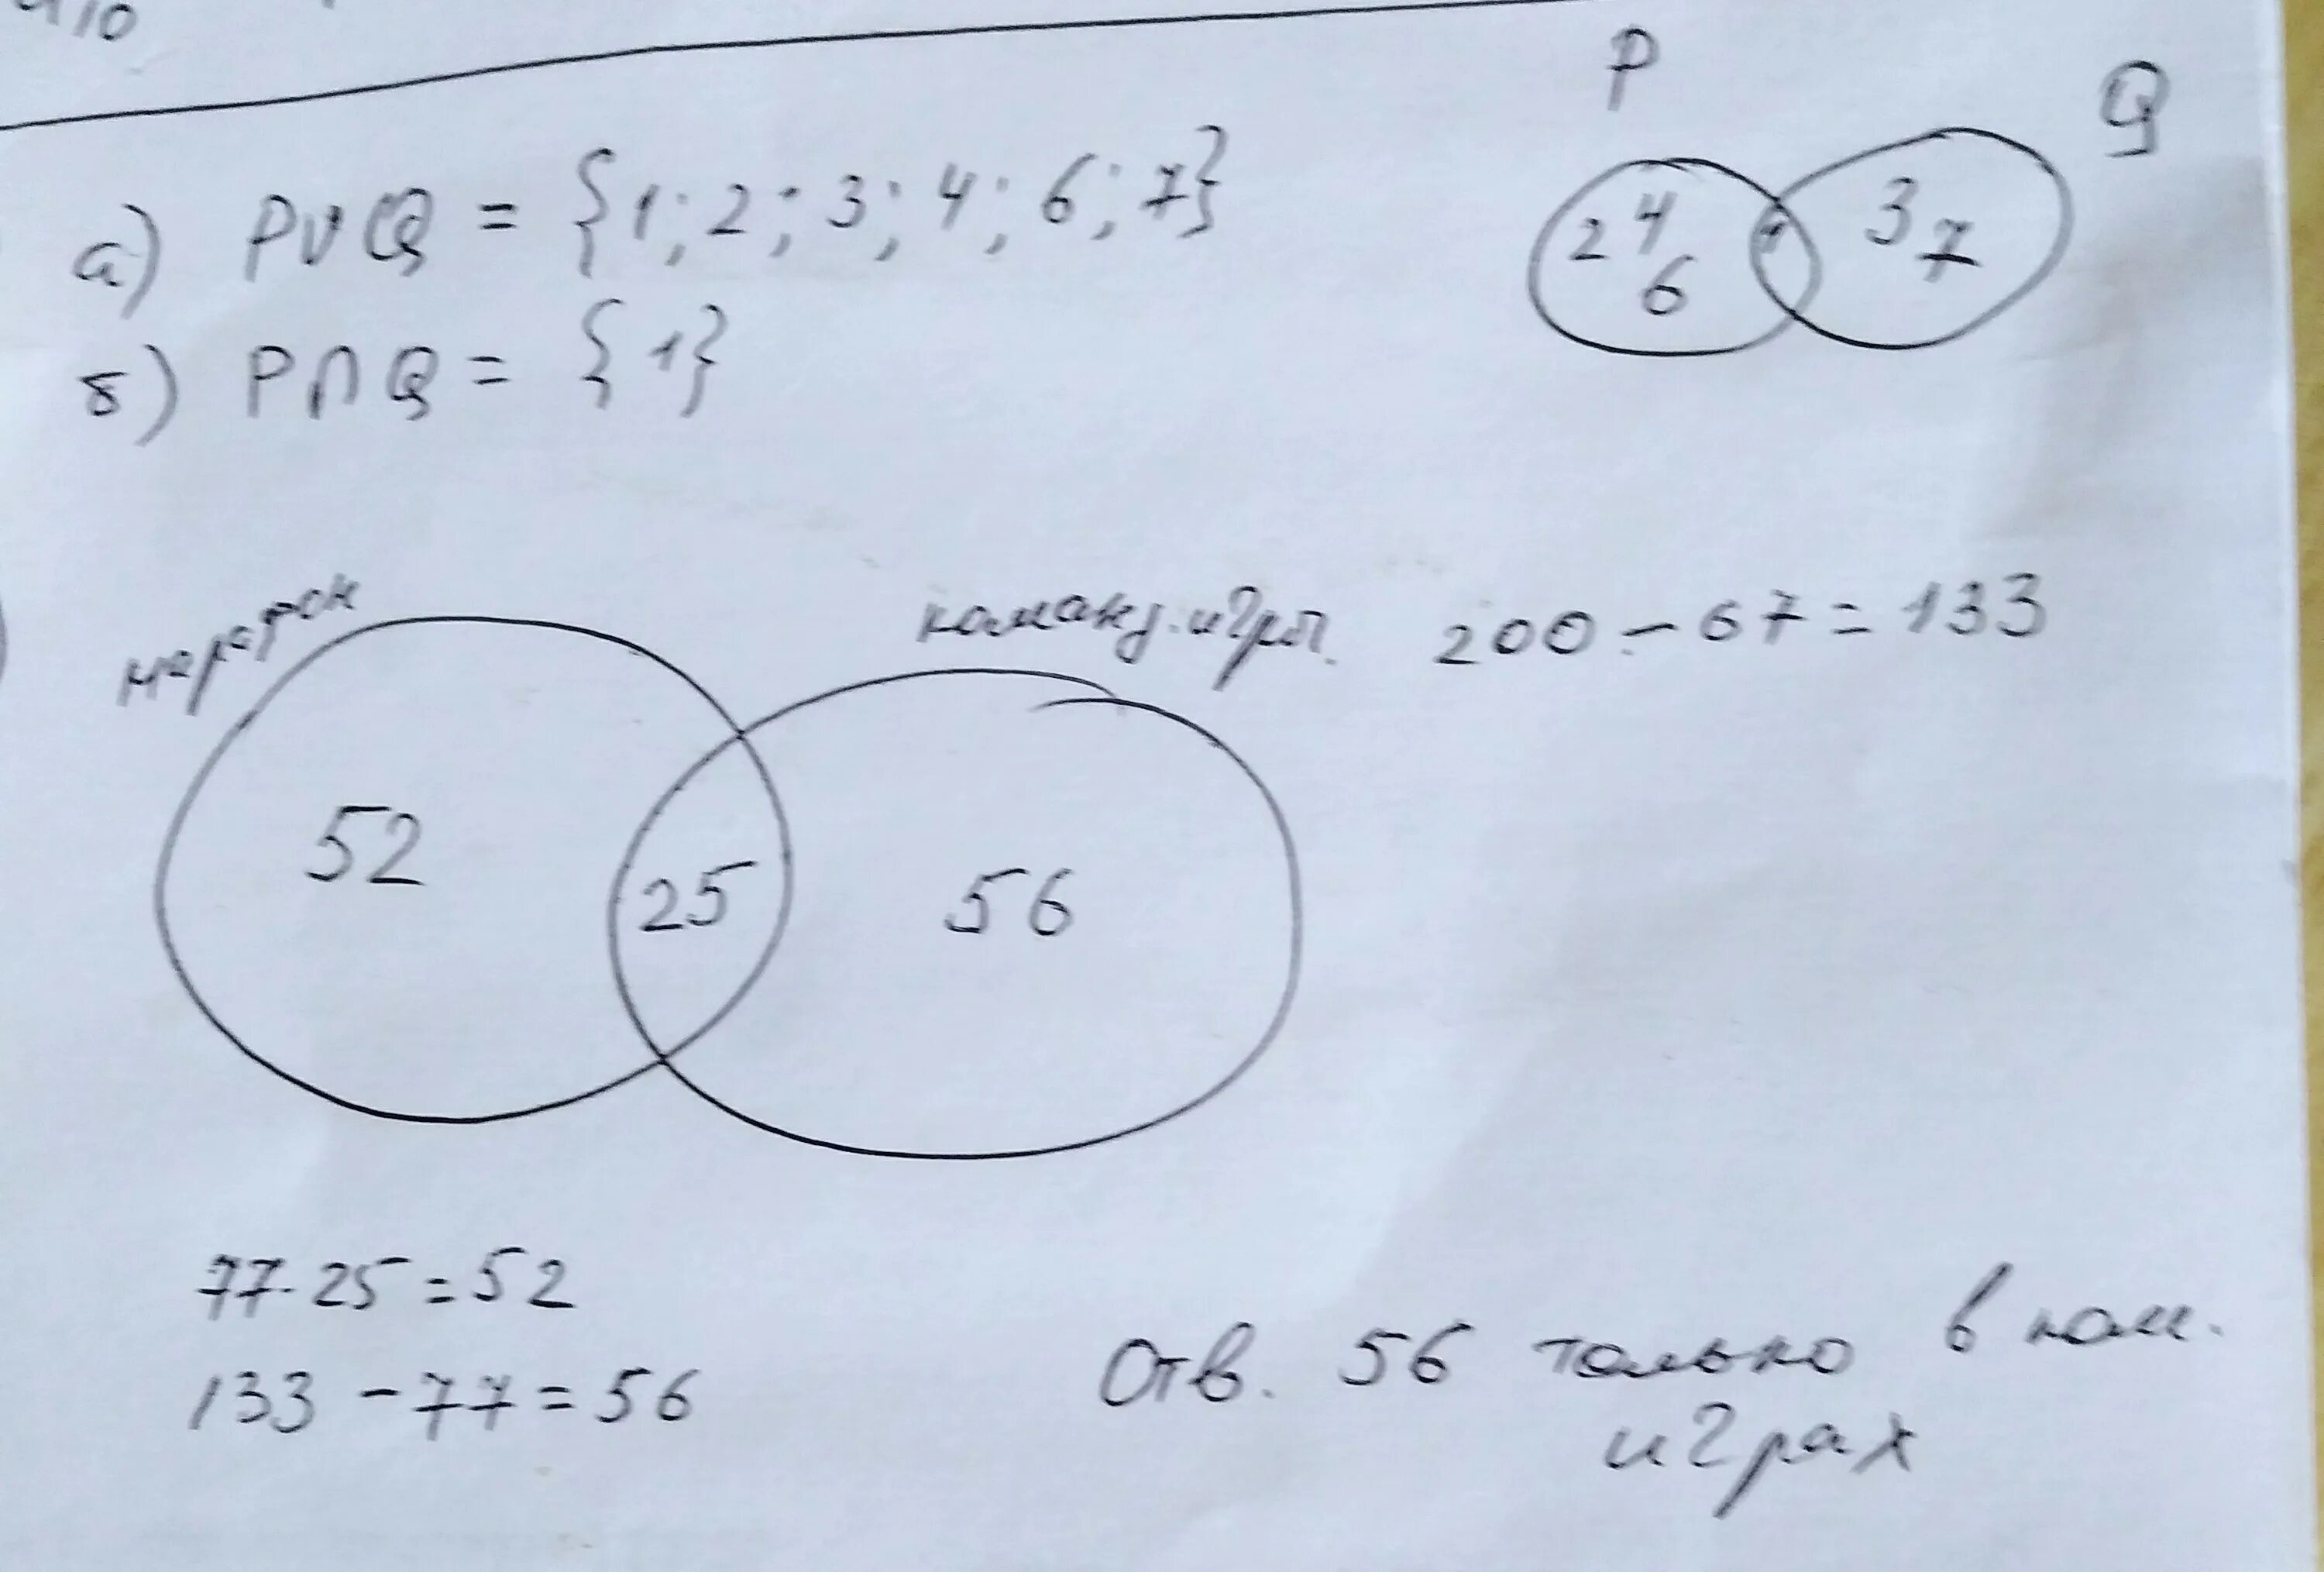 10
P
Q
а) P∪Q = {1; 2; 3; 4; 6; 7}
2 4 6 1 3 7
б) P∩Q = {1}
марафон
команд. игры.
200 - 67 = 133
52
25
56
77-25=52
133 - 77 = 56
Отв. 56 только в ком.
играх